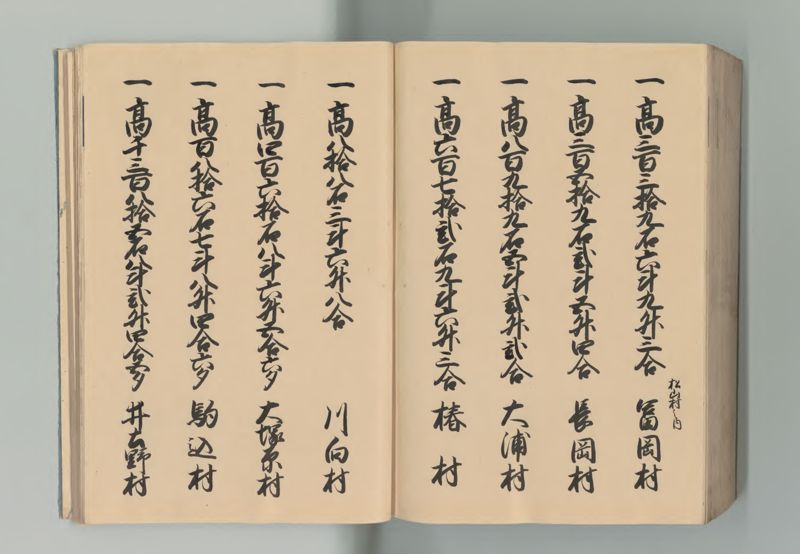 一 高三百三拾九石六斗九升三合 松山村之内 冨岡村
一 高三百五拾九石弐斗五升四合 長岡村
一 高八百九拾九石五斗弐升弐合 大浦村
一 高六百七拾弐石九斗六升三合 椿村
一 高八拾八石三斗六升八合 川向村
一 高四百六拾石八斗六升五合六夕 大塚原村
一 高百八拾六石七斗八升四合六夕 駒込村
一 高千三百八拾五石八斗弐升四合 井古野村